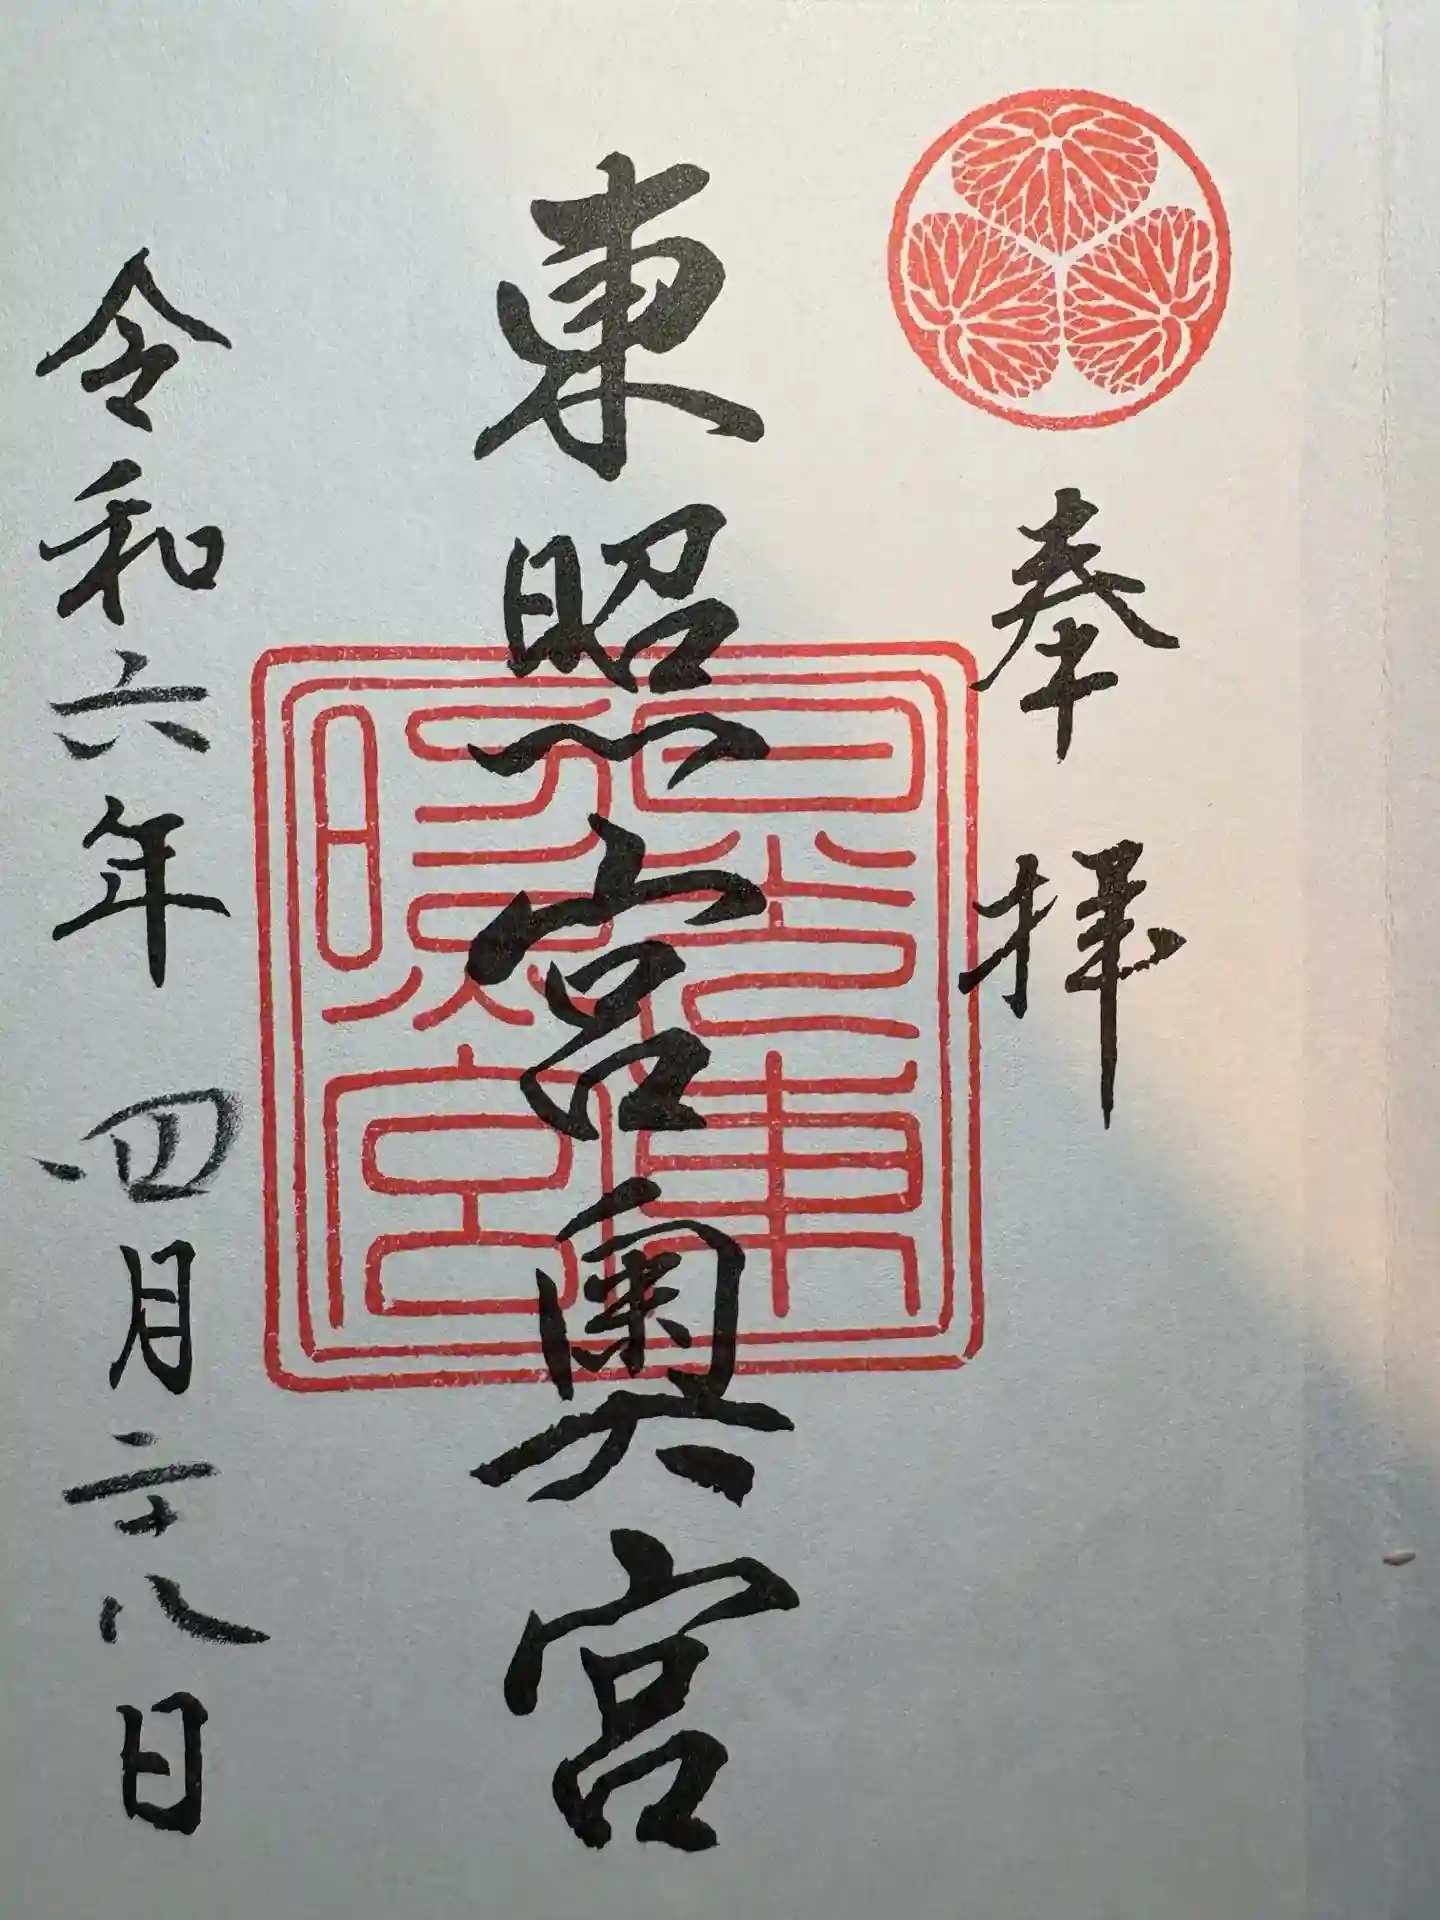 奉拝
東照宮奥宮
日光東
照宮
令和六年 四月二十八日